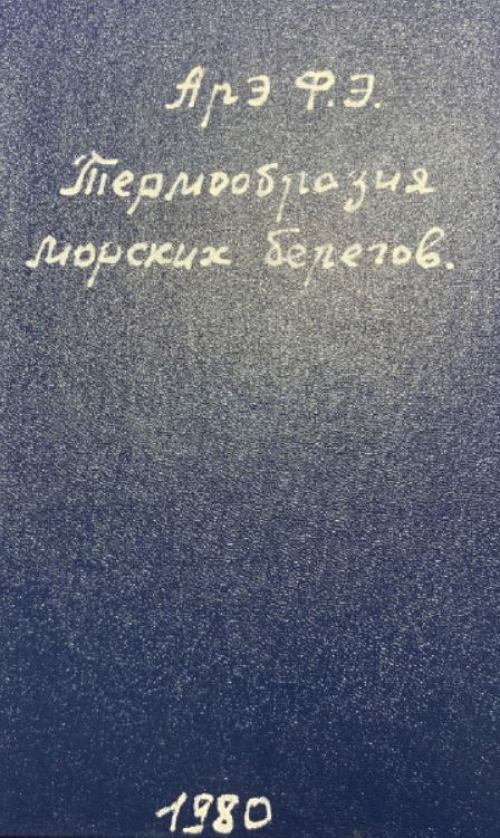 Арэ Ф.Э.
Термообразия
морских берегов.
1980